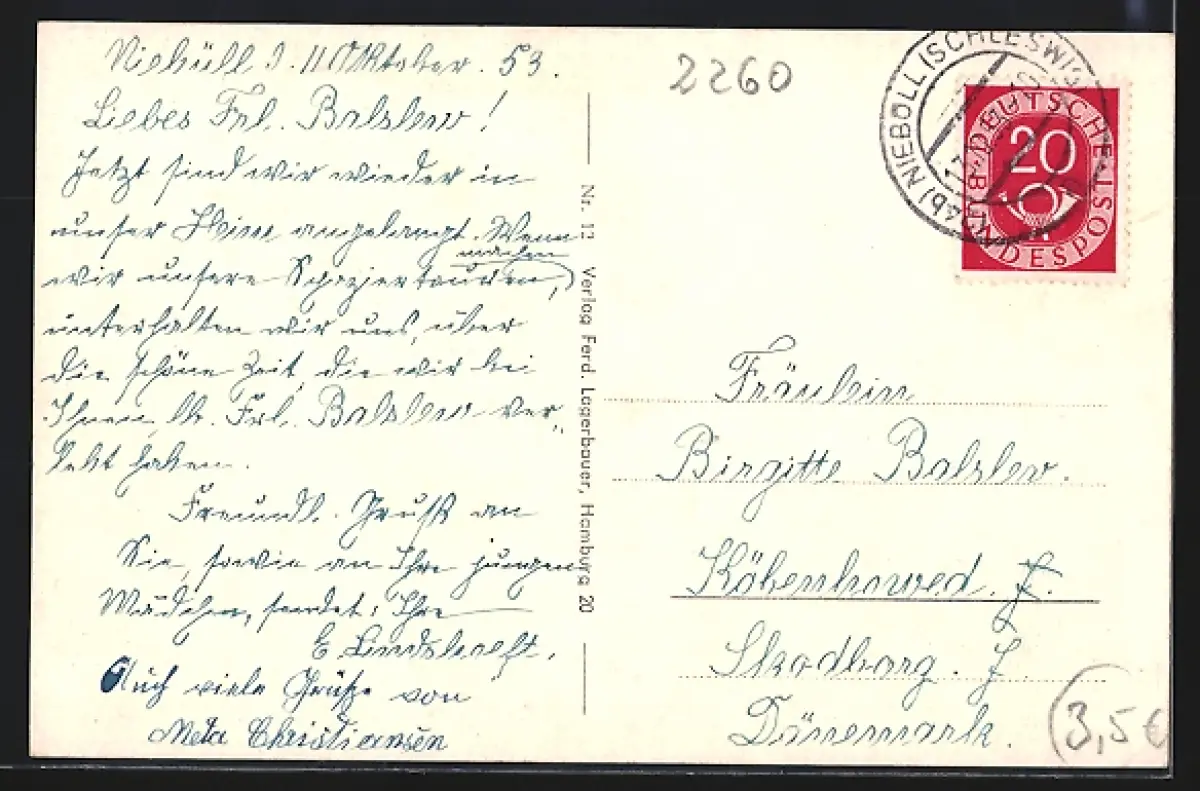 Niebüll d. 11 Oktober. 53.
Liebes Frl. Balslew!
Jetzt sind wir wieder in
unser Heim angelangt. Wenn
machen
wir unsere Spaziertouren,
unterhalten wir uns, über
die schöne Zeit, die wir bei
Ihnen, lb. Frl. Balslew ver-
lebt haben.
Freundl. Gruß an
Sie, sowie an Ihre jungen
Mädchen, sendet: Ihre
E
Auch viele Grüße von
Meta Christiansen
Nr. 12 Verlag Ferd. Lagerbauer, Hamburg 20
2260
(24b) NIEBÜLL (SCHLESWIG)
DEUTSCHE BUNDESPOST
20
Fräulein
Birgitte Balslev.
Skodborg. J.
Dänemark.
3,5€